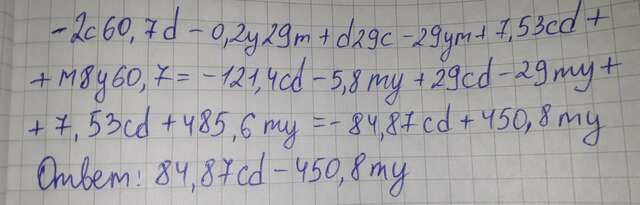 -2c60,7d-0,2y29m+d29c-29ym+7,53cd+
+m8y60,7=-121,4cd-5,8my+29cd-29my+
+7,53cd+485,6my=-84,87cd+450,8my
Ответ: 84,87cd-450,8my